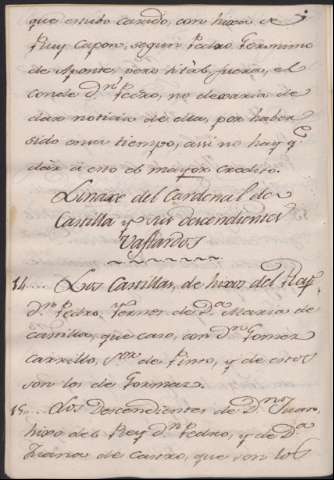 que estubo casado, con hixa de
Ruy Capon, segun Pedro Geronimo
de Aponte, pero si tal fuera, el
conde Dⁿ Pedro, no dexaria de
dar noticia de ella, por haber
sido en su tiempo, assi no hay qᵉ
dar à esto el mayor credito.
Linaxe del Cardenal de
Castilla y sus descendientes
Vastardos
14.... Los Castillas, de hixos del Rey
Dⁿ Pedro, Yernos de Dª Maria de
Castilla, que caso, con Dⁿ Gomez
Carrillo, Sᵒʳ de Pinto, y de estos
son los de Gormaz.
15.... Los Descendientes de Dⁿ Juan,
hixo del Rey Dⁿ Pedro, y de Dª
Juana de Castro, que son los